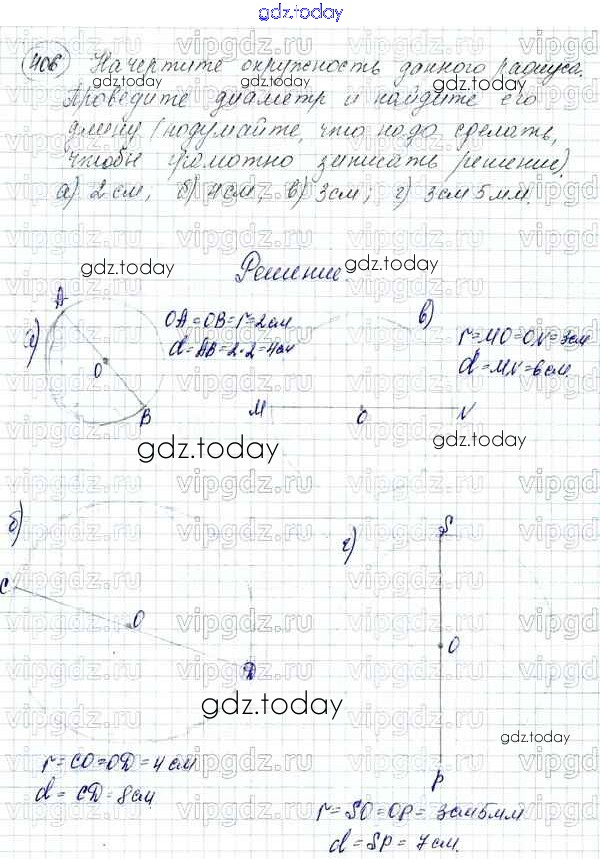 gdz.today
406 Начертите окружность данного радиуса.
Проведите диаметр и найдите его
длину (подумайте, что надо сделать,
чтобы грамотно записать решение).
а) 2 см, б) 4 см, в) 3 см; г) 3 см 5 мм.
gdz.today
Решение.
gdz.today
а)
A
O
B
OA = OB = r = 2 см
d = AB = 2·2 = 4 см
в)
r = MO = ON = 3 см
d = MN = 6 см
M O N
gdz.today
gdz.today
б)
C
O
D
г)
S
O
P
gdz.today
gdz.today
r = CO = OD = 4 см
d = CD = 8 см
r = SO = OP = 3 см 5 мм
d = SP = 7 см.
vipgdz.ru